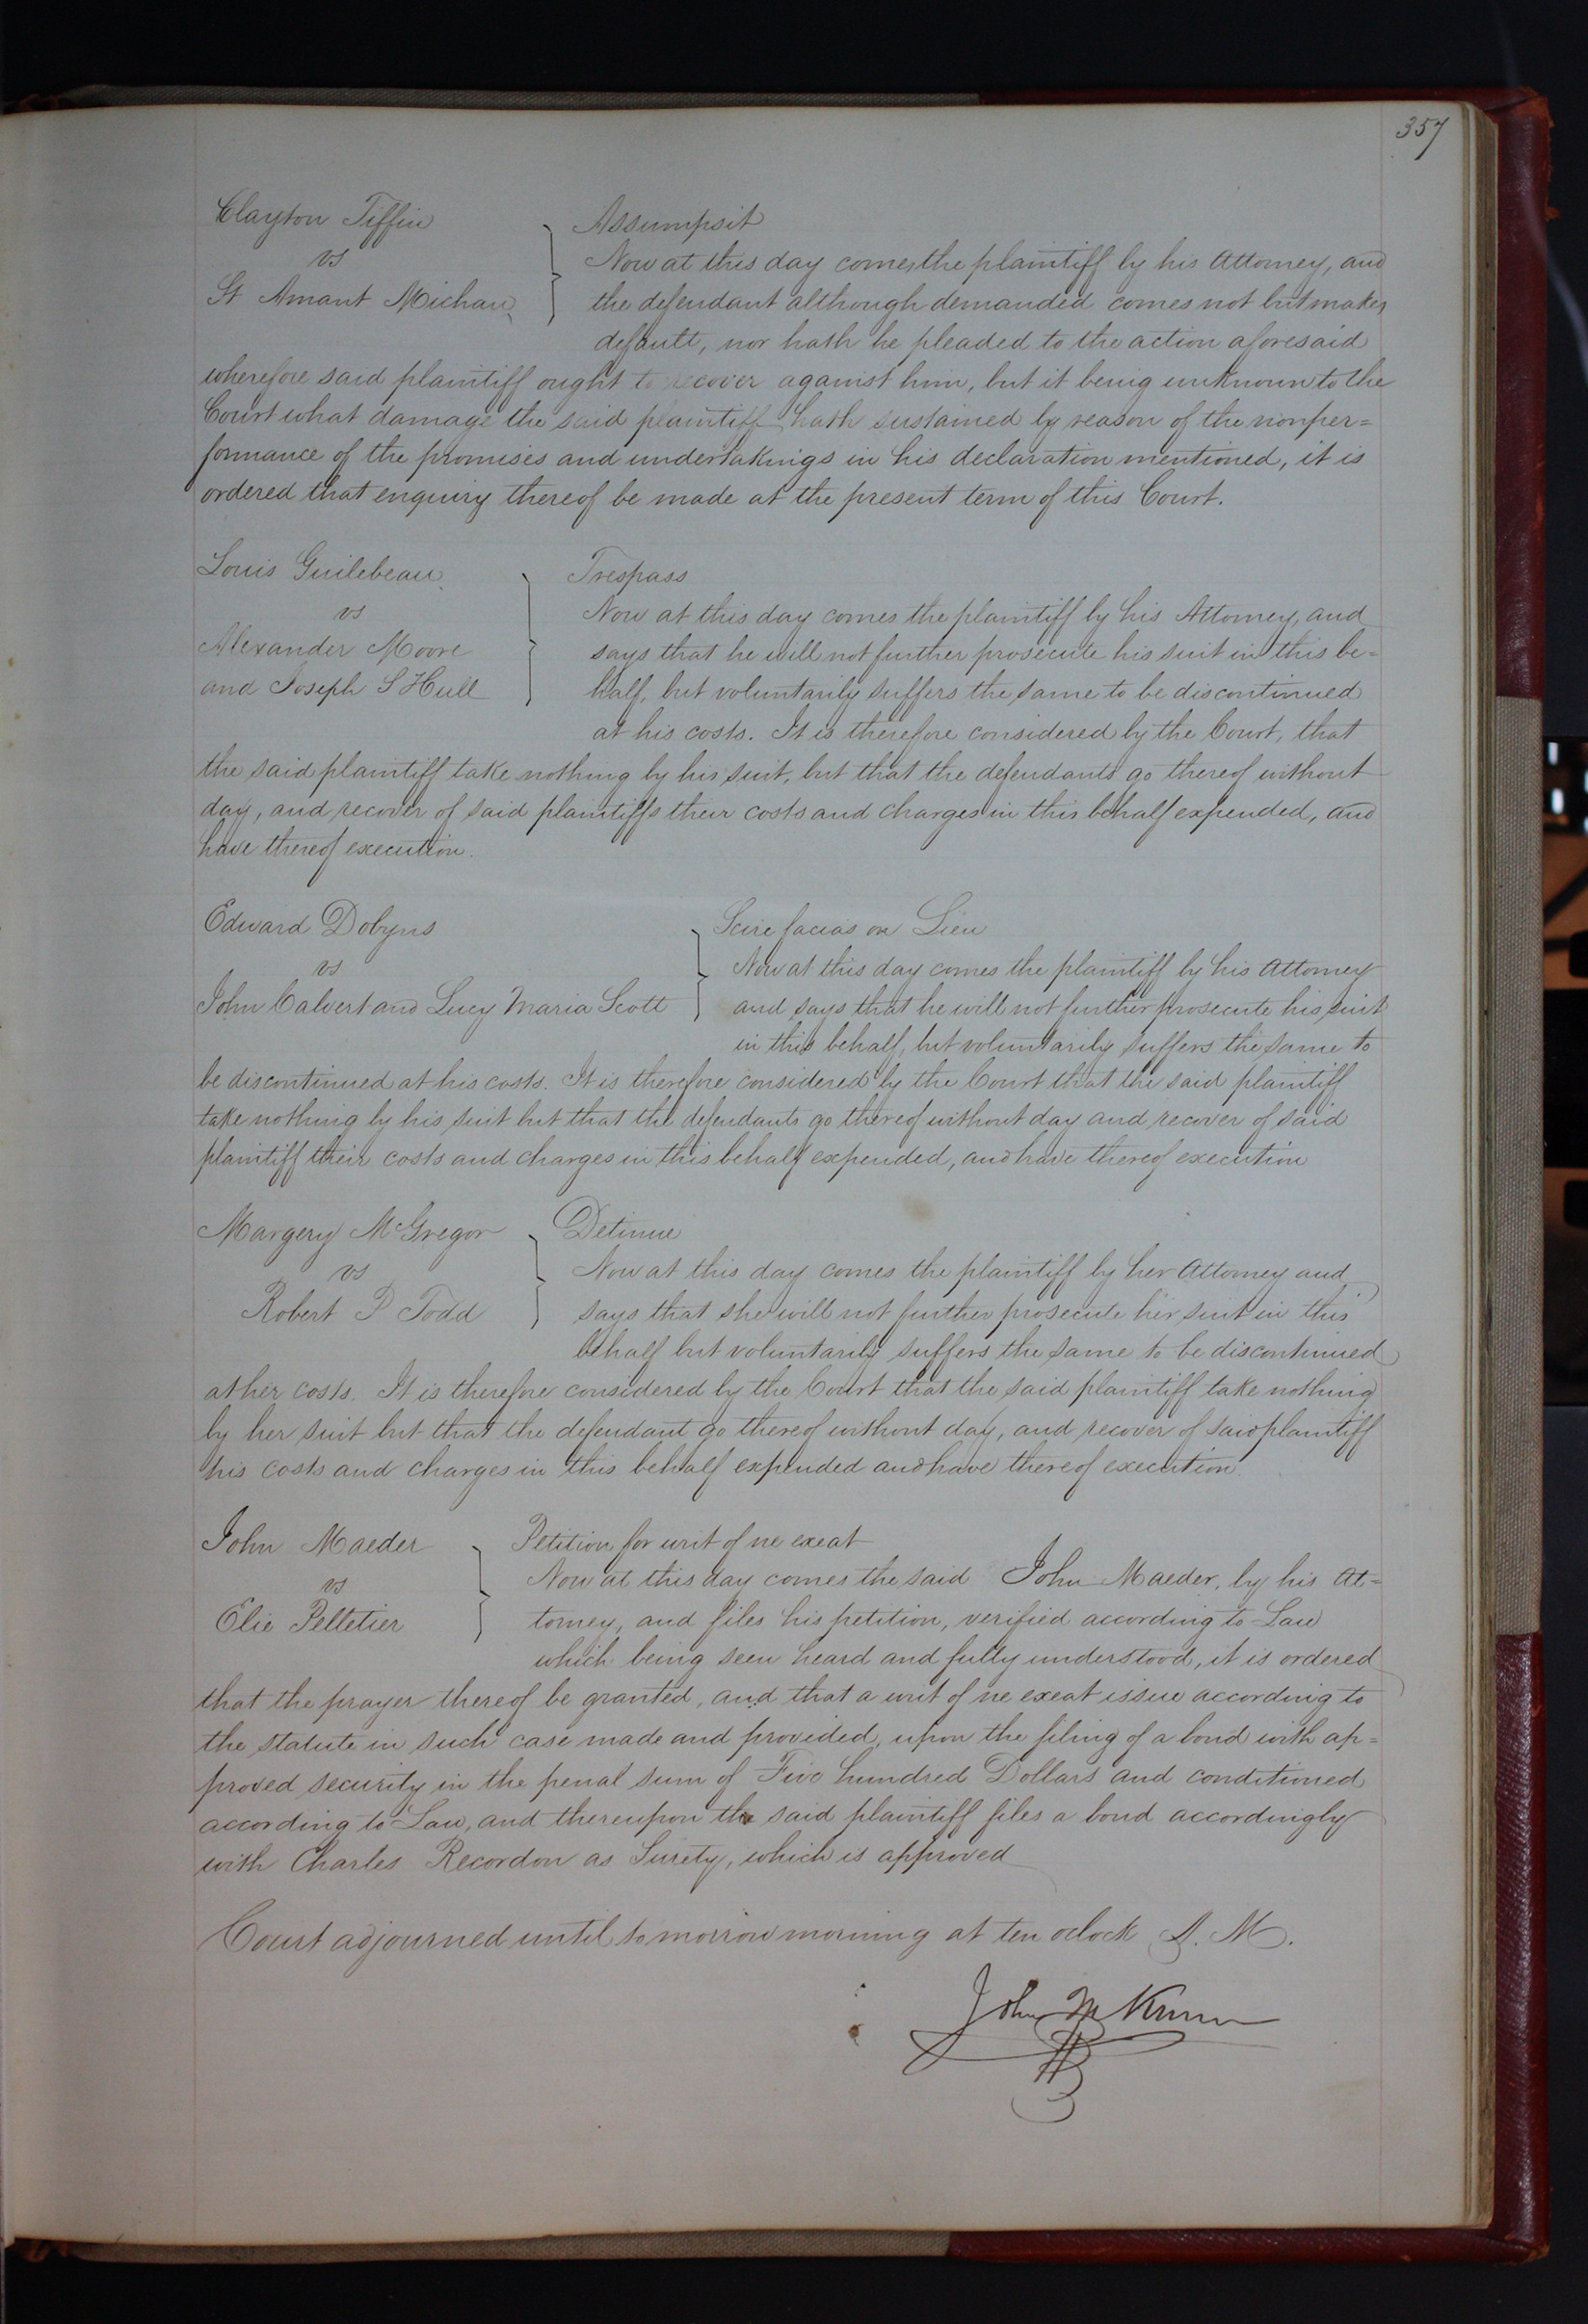 357
Clayton Tiffin
vs
St Amant Michau
Assumpsit
Now at this day comes the plaintiff by his Attorney, and
the defendant although demanded comes not but makes
default, nor hath he pleaded to the action aforesaid
wherefore said plaintiff ought to recover against him, but it being unknown to the
Court what damage the said plaintiff hath sustained by reason of the nonper=
formance of the promises and undertakings in his declaration mentioned, it is
ordered that enquiry thereof be made at the present term of this Court.
Louis Guilebeau
vs
Alexander Moore
and Joseph S Hull
Trespass
Now at this day comes the plaintiff by his Attorney, and
says that he will not further prosecute his suit in this be=
half, but voluntarily suffers the same to be discontinued
at his costs. It is therefore considered by the Court, that
the said plaintiff take nothing by his suit, but that the defendants go thereof without
day, and recover of said plaintiffs their costs and charges in this behalf expended, and
have thereof execution.
Edward Dobyns
vs
John Calvert and Lucy Maria Scott
Scire facias on Lien
Now at this day comes the plaintiff by his Attorney
and says that he will not further prosecute his suit
in this behalf, but voluntarily suffers the same to
be discontinued at his costs. It is therefore considered by the Court that the said plaintiff
take nothing by his suit but that the defendants go thereof without day and recover of said
plaintiff their costs and charges in this behalf expended, and have thereof execution
Margery McGregor
vs
Robert P Todd
Detinue
Now at this day comes the plaintiff by her Attorney and
says that she will not further prosecute her suit in this
behalf but voluntarily suffers the same to be discontinued
at her costs. It is therefore considered by the Court that the said plaintiff take nothing
by her suit but that the defendant go thereof without day, and recover of said plaintiff
his costs and charges in this behalf expended and have thereof execution.
John Maeder
vs
Elie Pelletier
Petition for writ of ne exeat
Now at this day comes the said John Maeder, by his At=
torney, and files his petition, verified according to Law
which being seen heard and fully understood, it is ordered
that the prayer thereof be granted, and that a writ of ne exeat issue according to
the statute in such case made and provided, upon the filing of a bond with ap=
proved security in the penal sum of Five hundred Dollars and conditioned
according to Law, and thereupon the said plaintiff files a bond accordingly
with Charles Recordon as Surety, which is approved
Court adjourned until tomorrow morning at ten oclock A. M.
John M Krum